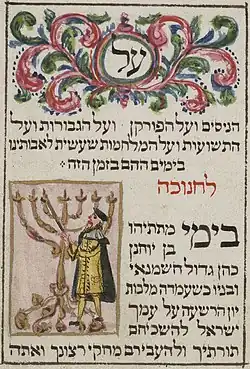 על
הניסים ועל הפורקן, ועל הגבורות ועל
התשועות ועל המלחמות שעשית לאבותינו
בימים ההם בזמן הזה:
לחנוכה
בימי מתתיהו
בן יוחנן
כהן גדול חשמנאי
ובניו כשעמדה מלכות
יון הרשעה על עמך
ישראל להשכיחם
תורתיך ולהעבירם מחקי רצונך ואתה